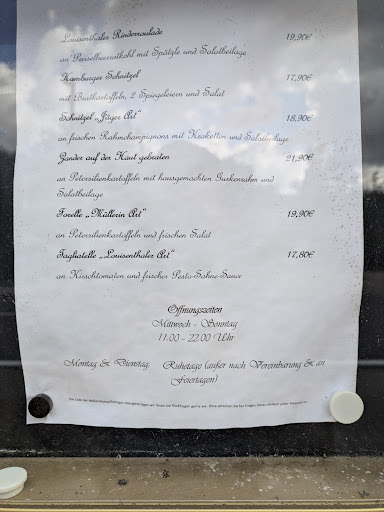 Louisenthaler Rinderroulade 19,90€
an Preiselbeerrotkohl mit Spätzle und Salatbeilage
Hamburger Schnitzel 17,90€
mit Bratkartoffeln, 2 Spiegeleiern und Salat
Schnitzel „Jäger Art" 18,90€
an frischen Rahmchampignons mit Kroketten und Salatbeilage
Zander auf der Haut gebraten 21,90€
an Petersilienkartoffeln mit hausgemachten Gurkenrahm und
Salatbeilage
Forelle „Müllerin Art" 19,90€
an Petersilienkartoffeln und frischen Salat
Tagliatelle „Louisenthaler Art" 17,80€
an Kirschtomaten und frischer Pesto-Sahne-Sauce
Öffnungszeiten
Mittwoch - Sonntag
11:00 - 22:00 Uhr
Montag & Dienstag: Ruhetage (außer nach Vereinbarung & an
Feiertagen)